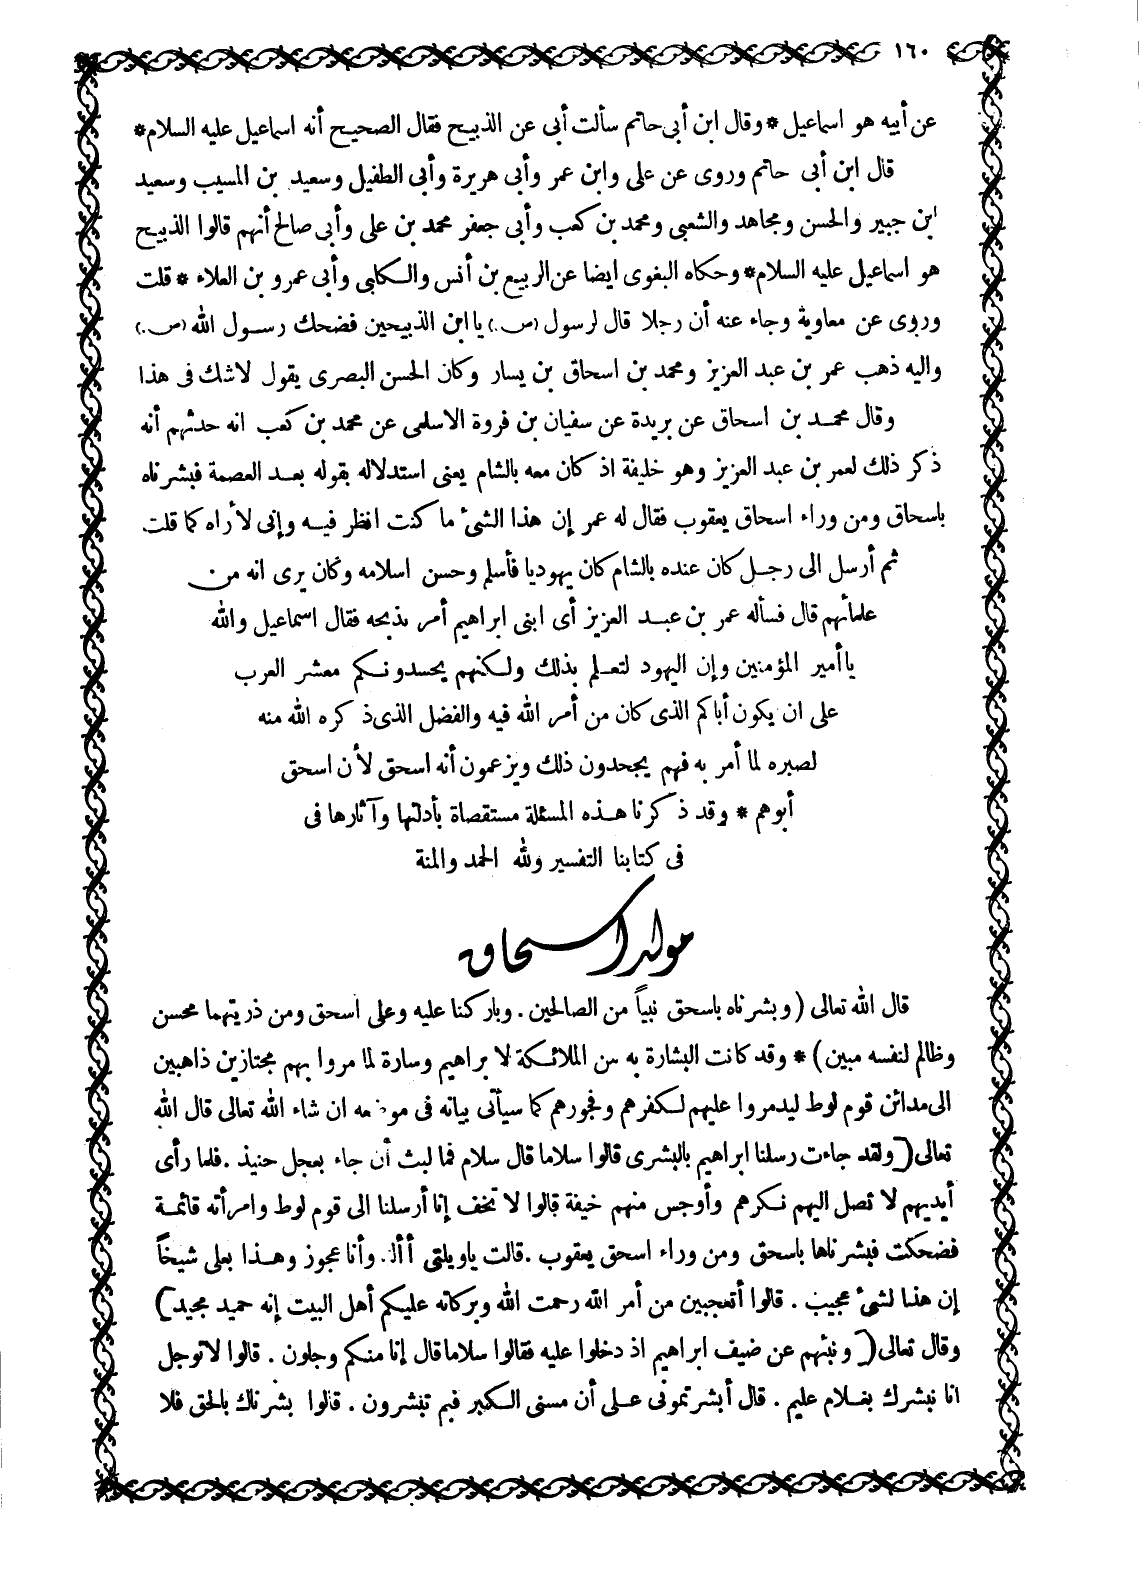 ١٦٠
عن أبيه هو اسماعيل * وقال ابن أبى حاتم سألت أبى عن الذبيح فقال الصحيح أنه اسماعيل عليه السلام *
قال ابن أبى حاتم وروى عن على وابن عمر وأبى هريرة وأبى الطفيل وسعيد بن المسيب وسعيد
ابن جبير والحسن ومجاهد والشعبى ومحمد بن كعب وأبى جعفر محمد بن على وأبى صالح أنهم قالوا الذبيح
هو اسماعيل عليه السلام * وحكاه البغوى ايضا عن الربيع بن أنس والكلبى وأبى عمرو بن العلاء * قلت
وروى عن معاوية وجاء عنه أن رجلا قال لرسول (ص.) يا ابن الذبيحين فضحك رسول الله (ص.)
واليه ذهب عمر بن عبد العزيز ومحمد بن اسحاق بن يسار وكان الحسن البصرى يقول لاشك فى هذا
وقال محمد بن اسحاق عن بريدة عن سفيان بن فروة الاسلمى عن محمد بن كعب انه حدثهم أنه
ذكر ذلك لعمر بن عبد العزيز وهو خليفة اذ كان معه بالشام يعنى استدلاله بقوله بعد العصمة فبشرناه
باسحاق ومن وراء اسحاق يعقوب فقال له عمر إن هذا الشئ ما كنت افظر فيه وإنى لأراه كما قلت.
ثم أرسل الى رجل كان عنده بالشام كان يهوديا فأسلم وحسن اسلامه وكان يرى انه من
علمائهم قال فسأله عمر بن عبد العزيز أى ابنى ابراهيم أمر بذبحه فقال اسماعيل والله
يا أمير المؤمنين وإن اليهود لتعلم بذلك ولكنهم يحسدونكم معشر العرب
على ان يكون أباكم الذى كان من أمر الله فيه والفضل الذى ذكره الله منه
لصبره لما أمر به فهم يجحدون ذلك ويزعمون أنه اسحق لأن اسحق
أبوهم * وقد ذكرنا هذه المسئلة مستقصاة بأدلتها وآثارها فى
فى كتابنا التفسير ولله الحمد والمنة
مولد اسحاق
قال الله تعالى (وبشرناه باسحق نبياً من الصالحين . وباركنا عليه وعلى اسحق ومن ذريتهما محسن
وظالم لنفسه مبين) * وقد كانت البشارة به من الملائكة لابراهيم وسارة لما مروا بهم مجتازين ذاهبين
الى مدائن قوم لوط ليدمروا عليهم لكفرهم وفجورهم كما سيأتى بيانه فى موضعه ان شاء الله تعالى قال الله
تعالى (ولقد جاءت رسلنا ابراهيم بالبشرى قالوا سلاما قال سلام فما لبث أن جاء بعجل حنيذ . فلما رأى
أيديهم لا تصل اليهم نكرهم وأوجس منهم خيفة قالوا لا تخف إنا أرسلنا الى قوم لوط وامرأته قائمة
فضحكت فبشرناها باسحق ومن وراء اسحق يعقوب . قالت ياويلتى أألد وأنا عجوز وهذا بعلى شيخاً
إن هذا لشئ عجيب . قالوا أتعجبين من أمر الله رحمت الله وبركاته عليكم أهل البيت إنه حميد مجيد)
وقال تعالى (ونبئهم عن ضيف ابراهيم اذ دخلوا عليه فقالوا سلاما قال إنا منكم وجلون . قالوا لا توجل
انا نبشرك بغلام عليم . قال أبشرتمونى على أن مسنى الكبر فبم تبشرون . قالوا بشرناك بالحق فلا